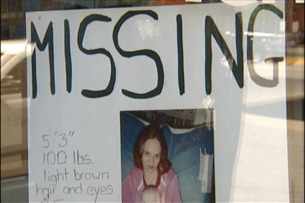 MISSING
5'3"
100 lbs.
light brown
hair and eyes